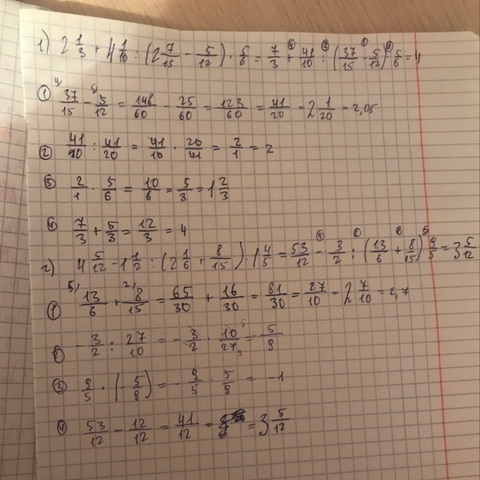 1) 2 1/3 + 4 1/10 : (2 7/15 - 5/12) · 5/6 = 7/3 + 41/10 : (37/15 - 5/12) · 5/6 = 4
① 37/15 - 5/12 = 148/60 - 25/60 = 123/60 = 41/20 = 2 1/20 = 2,05
② 41/10 : 41/20 = 41/10 · 20/41 = 2/1 = 2
③ 2/1 · 5/6 = 10/6 = 5/3 = 1 2/3
④ 7/3 + 5/3 = 12/3 = 4
2) 4 5/12 - 1 1/2 : (2 1/6 + 8/15) · 1 4/5 = 53/12 - 3/2 : (13/6 + 8/15) · 9/5 = 3 5/12
① 13/6 + 8/15 = 65/30 + 16/30 = 81/30 = 27/10 = 2 7/10 = 2,7
② - 3/2 : 27/10 = - 3/2 · 10/27 = 5/9
③ 9/5 · (- 5/9) = - 9/5 · 5/9 = -1
④ 53/12 - 12/12 = 41/12 = 3 5/12